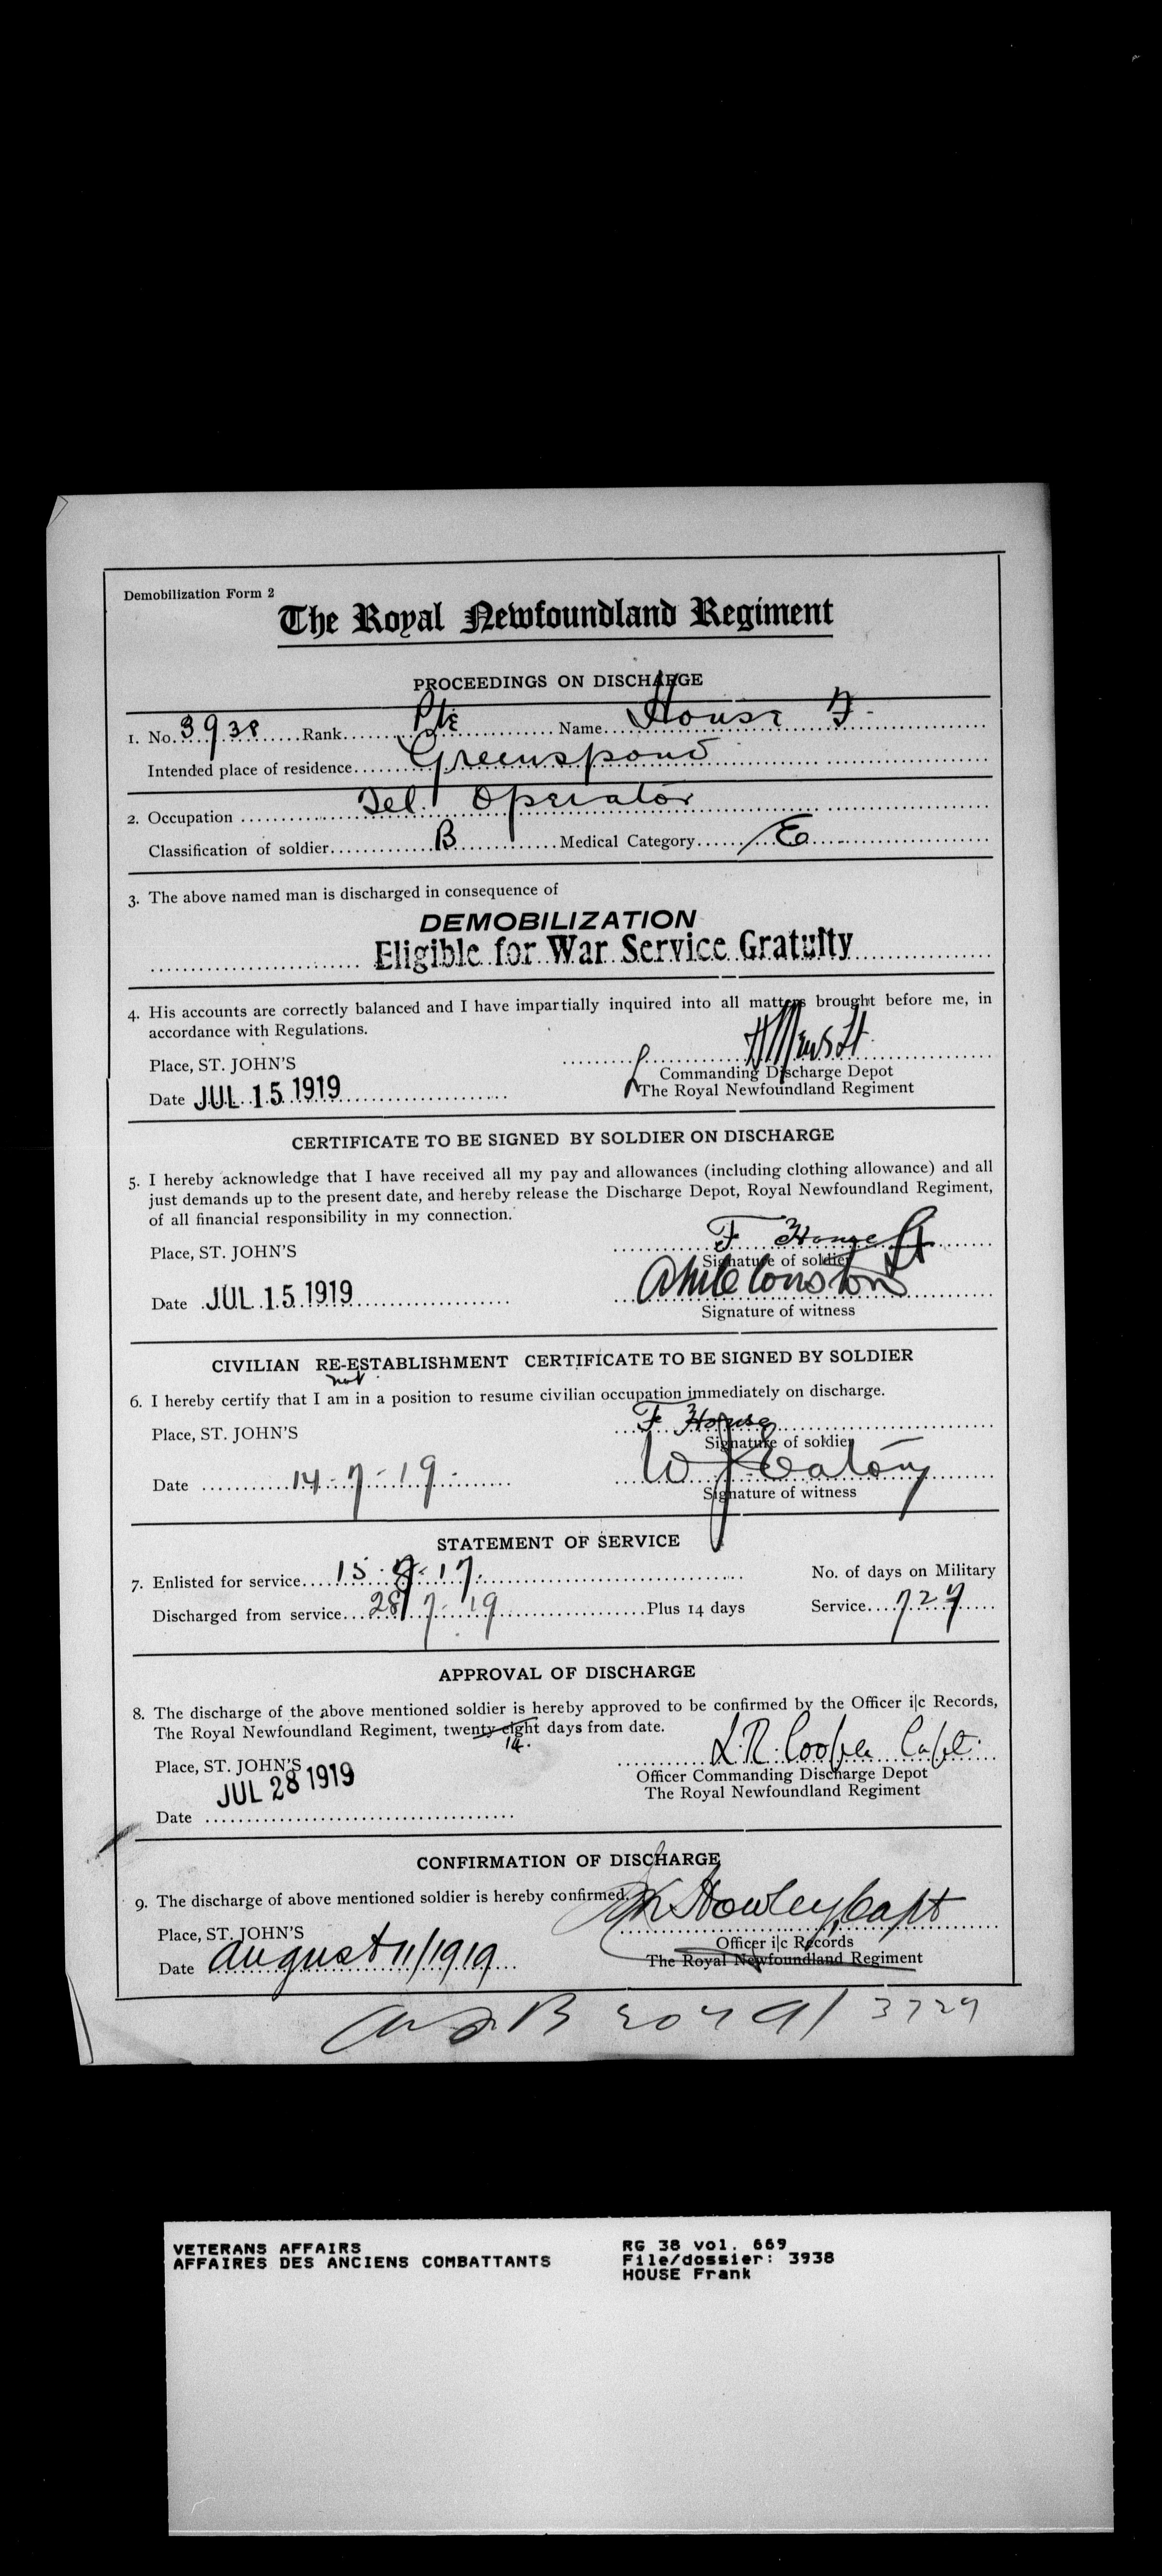 Demobilization Form 2
The Royal Newfoundland Regiment
PROCEEDINGS ON DISCHARGE
1. No. 3938 Rank Pte Name House F.
Intended place of residence Greenspond
2. Occupation Tel. Operator
Classification of soldier B Medical Category E
3. The above named man is discharged in consequence of
DEMOBILIZATION
Eligible for War Service Gratuity
4. His accounts are correctly balanced and I have impartially inquired into all matters brought before me, in
accordance with Regulations.
Place, ST. JOHN'S
Commanding Discharge Depot
Date JUL 15 1919
The Royal Newfoundland Regiment
CERTIFICATE TO BE SIGNED BY SOLDIER ON DISCHARGE
5. I hereby acknowledge that I have received all my pay and allowances (including clothing allowance) and all
just demands up to the present date, and hereby release the Discharge Depot, Royal Newfoundland Regiment,
of all financial responsibility in my connection.
Place, ST. JOHN'S F House
Signature of soldier
Date JUL 15 1919
Signature of witness
CIVILIAN RE-ESTABLISHMENT CERTIFICATE TO BE SIGNED BY SOLDIER
not
6. I hereby certify that I am in a position to resume civilian occupation immediately on discharge.
Place, ST. JOHN'S F House
Signature of soldier
Date 14-7-19 W J Eaton
Signature of witness
STATEMENT OF SERVICE
7. Enlisted for service 15.8.17. No. of days on Military
Discharged from service 28/7/19 Plus 14 days Service 727
APPROVAL OF DISCHARGE
8. The discharge of the above mentioned soldier is hereby approved to be confirmed by the Officer i|c Records,
The Royal Newfoundland Regiment, twenty-eight days from date.
14.
Place, ST. JOHN'S L.R. Cooper Capt.
JUL 28 1919
Officer Commanding Discharge Depot
The Royal Newfoundland Regiment
Date
CONFIRMATION OF DISCHARGE
9. The discharge of above mentioned soldier is hereby confirmed. Howley, Capt
Place, ST. JOHN'S
Officer i|c Records
Date August 11/1919
The Royal Newfoundland Regiment
3729
VETERANS AFFAIRS
AFFAIRES DES ANCIENS COMBATTANTS
RG 38 vol. 669
File/dossier: 3938
HOUSE Frank